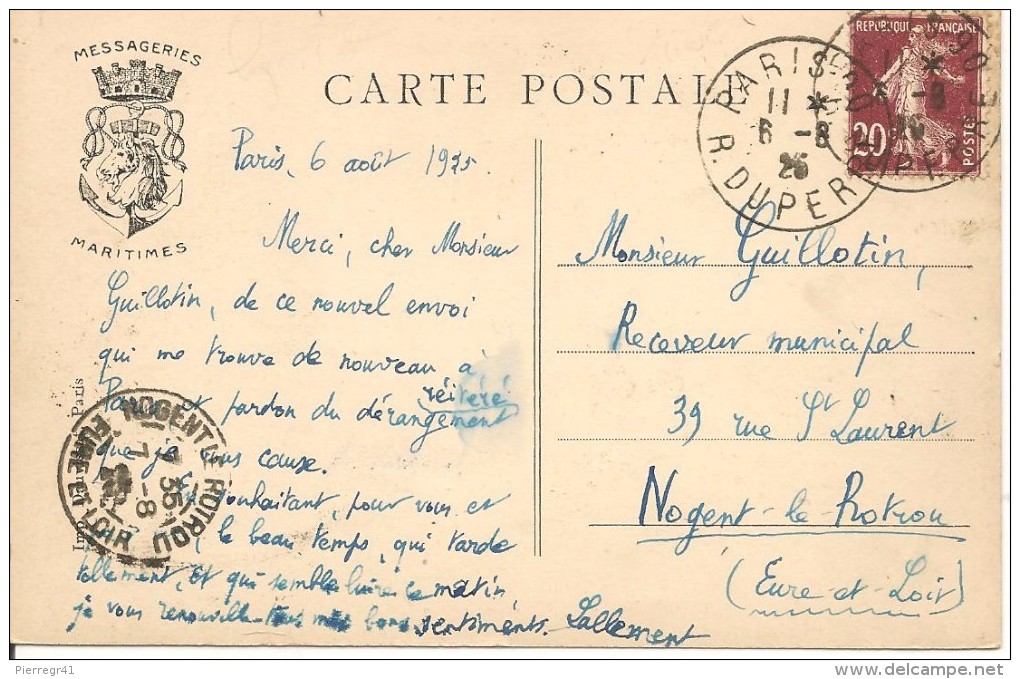 MESSAGERIES
MARITIMES
CARTE POSTALE
RÉPUBLIQUE FRANÇAISE
20
POSTES
PARIS
11 *
6 - 8
25
R. DUPERRÉ
Paris, 6 août 1925.
Merci, cher Monsieur
Guillotin, de ce nouvel envoi
qui me trouve de nouveau à
réitéré
Paris et pardon du dérangement
que je vous cause.
En souhaitant, pour vous et
, le beau temps, qui tarde
tellement, et qui semble luire ce matin,
je vous renouvelle tous mes bons sentiments. Lallement
Monsieur Guillotin,
Receveur municipal
39 rue St Laurent
Nogent-le-Rotrou
(Eure-et-Loir)
NOGENT LE ROTROU
7 - 8
EURE ET LOIR
Paris
Pierregr41